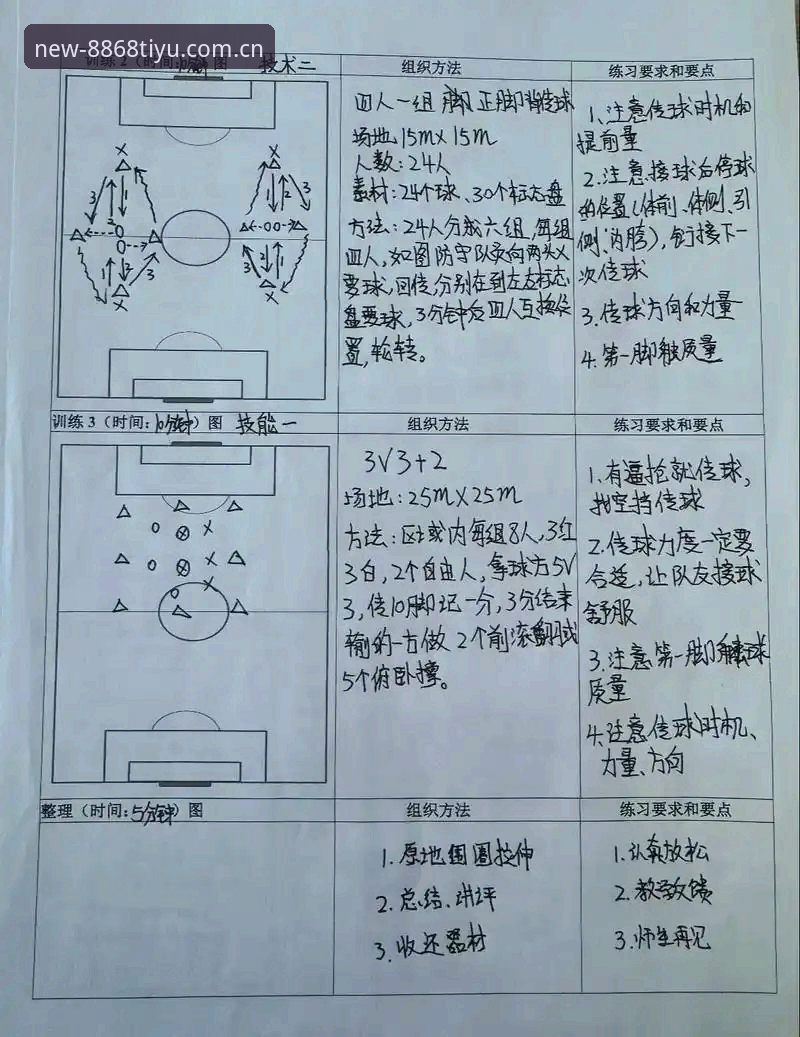 new-8868tiyu.com.cn
训练 2（时间：10分钟）图 技术二
组织方法
练习要求和要点
四人一组 脚正脚背传球
场地 15m×15m
人数：24人
器材：24个球、30个标志盘
方法：24人分成六组,每组
四人,如图防守队员向两头
要球,回传,分别在到左右标志
盘要球,3分钟后四人互换位
置,轮转。
1、注意传球时机和
提前量
2.注意接球后停球
的位置(体前、体侧、引
侧、内胯),衔接下一
次传球
3.传球方向和力量
4.第一脚触质量
训练 3（时间：10分钟）图 技能一
组织方法
练习要求和要点
3V3+2
场地：25m×25m
方法：区域内每组8人,3红
3白,2个自由人,拿球方5V
3,传10脚记一分,3分结束
输的一方做2个前滚翻或
5个俯卧撑。
1.有逼抢就传球,
找空挡传球
2.传球力度一定要
合适,让队友接球
舒服
3.注意第一脚触球
质量
4.注意传球时机、
力量、方向
整理（时间：5分钟）图
组织方法
练习要求和要点
1.原地围圆拉伸
2.总结、讲评
3.收还器材
1.认真放松
2.教学反馈
3.师生再见